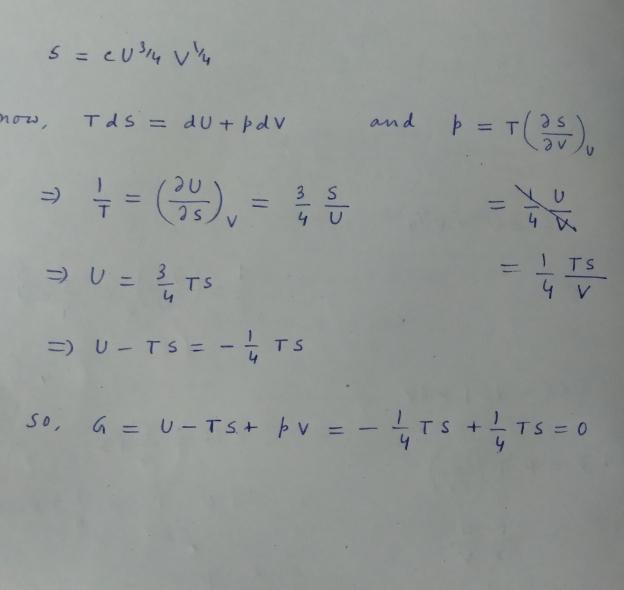 S = cU^{3/4} V^{1/4}
now, TdS = dU + pdV and p = T(∂S/∂V)_U
⇒ 1/T = (∂U/∂S)_V = 3/4 S/U = 1/4 U/V
⇒ U = 3/4 TS = 1/4 TS/V
⇒ U - TS = - 1/4 TS
so, G = U - TS + pV = - 1/4 TS + 1/4 TS = 0